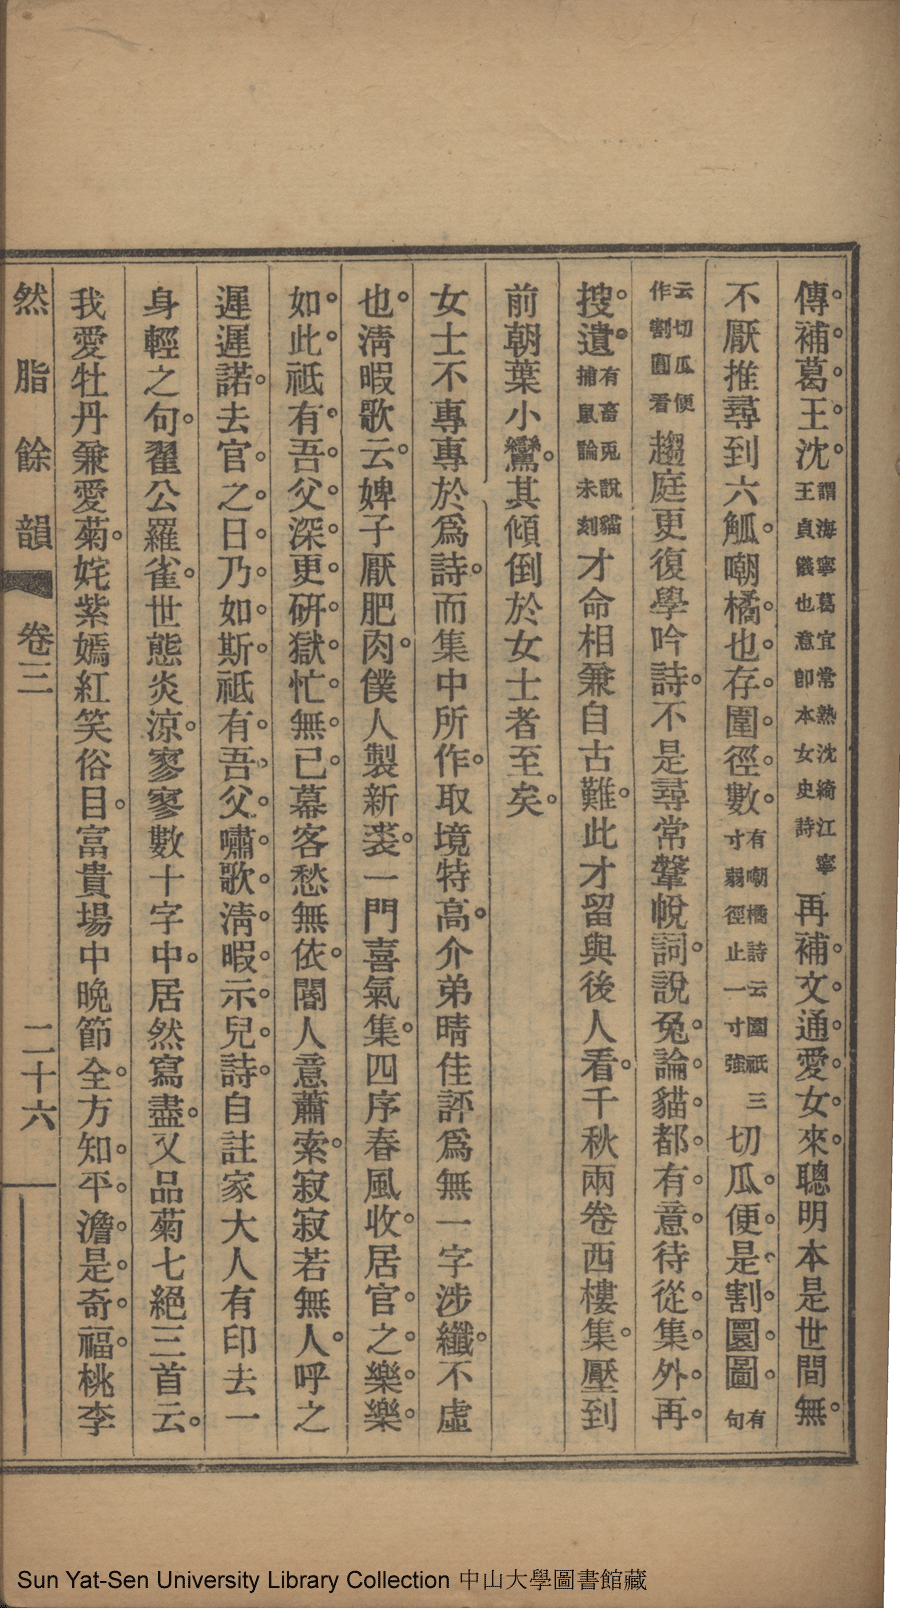 傳補葛王沈謂海寧葛宜常熟沈綺江寧王貞儀也意卽本女史詩再補文通愛女來聰明本是世間無
不厭推尋到六觚嘲橘也存圍徑數有嘲橘詩云圍祇三寸弱徑止一寸強切瓜便是割圜圖有句
云切瓜便作割圓看趨庭更復學吟詩不是尋常鞶帨詞說兔論貓都有意待從集外再
搜遺有畜兎說貓捕鼠論未刻才命相兼自古難此才留與後人看千秋兩卷西樓集壓到
前朝葉小鸞其傾倒於女士者至矣
女士不專專於爲詩而集中所作取境特高介弟晴佳評爲無一字涉纖不虛
也淸暇歌云婢子厭肥肉僕人製新裘一門喜氣集四序春風收居官之樂樂
如此祗有吾父深更研獄忙無已幕客愁無依閽人意蕭索寂寂若無人呼之
遲遲諾去官之日乃如斯祗有吾父嘯歌淸暇示兒詩自註家大人有印去一
身輕之句翟公羅雀世態炎涼寥寥數十字中居然寫盡又品菊七絕三首云
我愛牡丹兼愛菊姹紫嫣紅笑俗目富貴場中晚節全方知平澹是奇福桃李
然脂餘韻 卷三 二十六
Sun Yat-Sen University Library Collection 中山大學圖書館藏